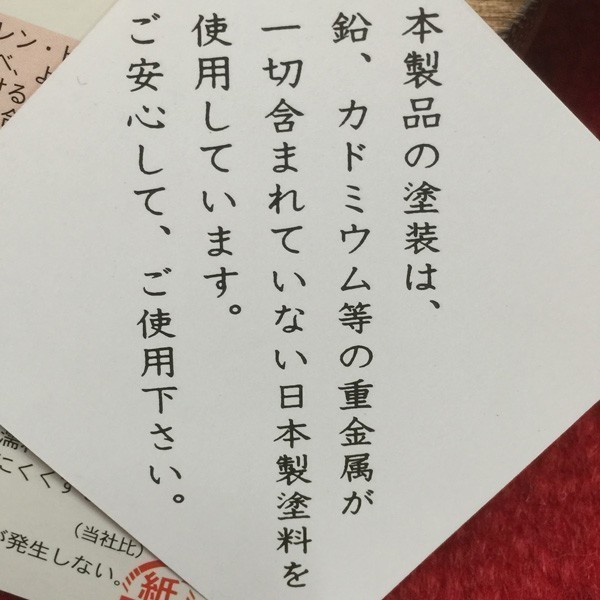 本製品の塗装は、
鉛、カドミウム等の重金属が
一切含まれていない日本製塗料を
使用しています。
ご安心して、ご使用下さい。
レン・ト
べ、よ
ける
にくくす
(当社比)
が発生しない。
紙